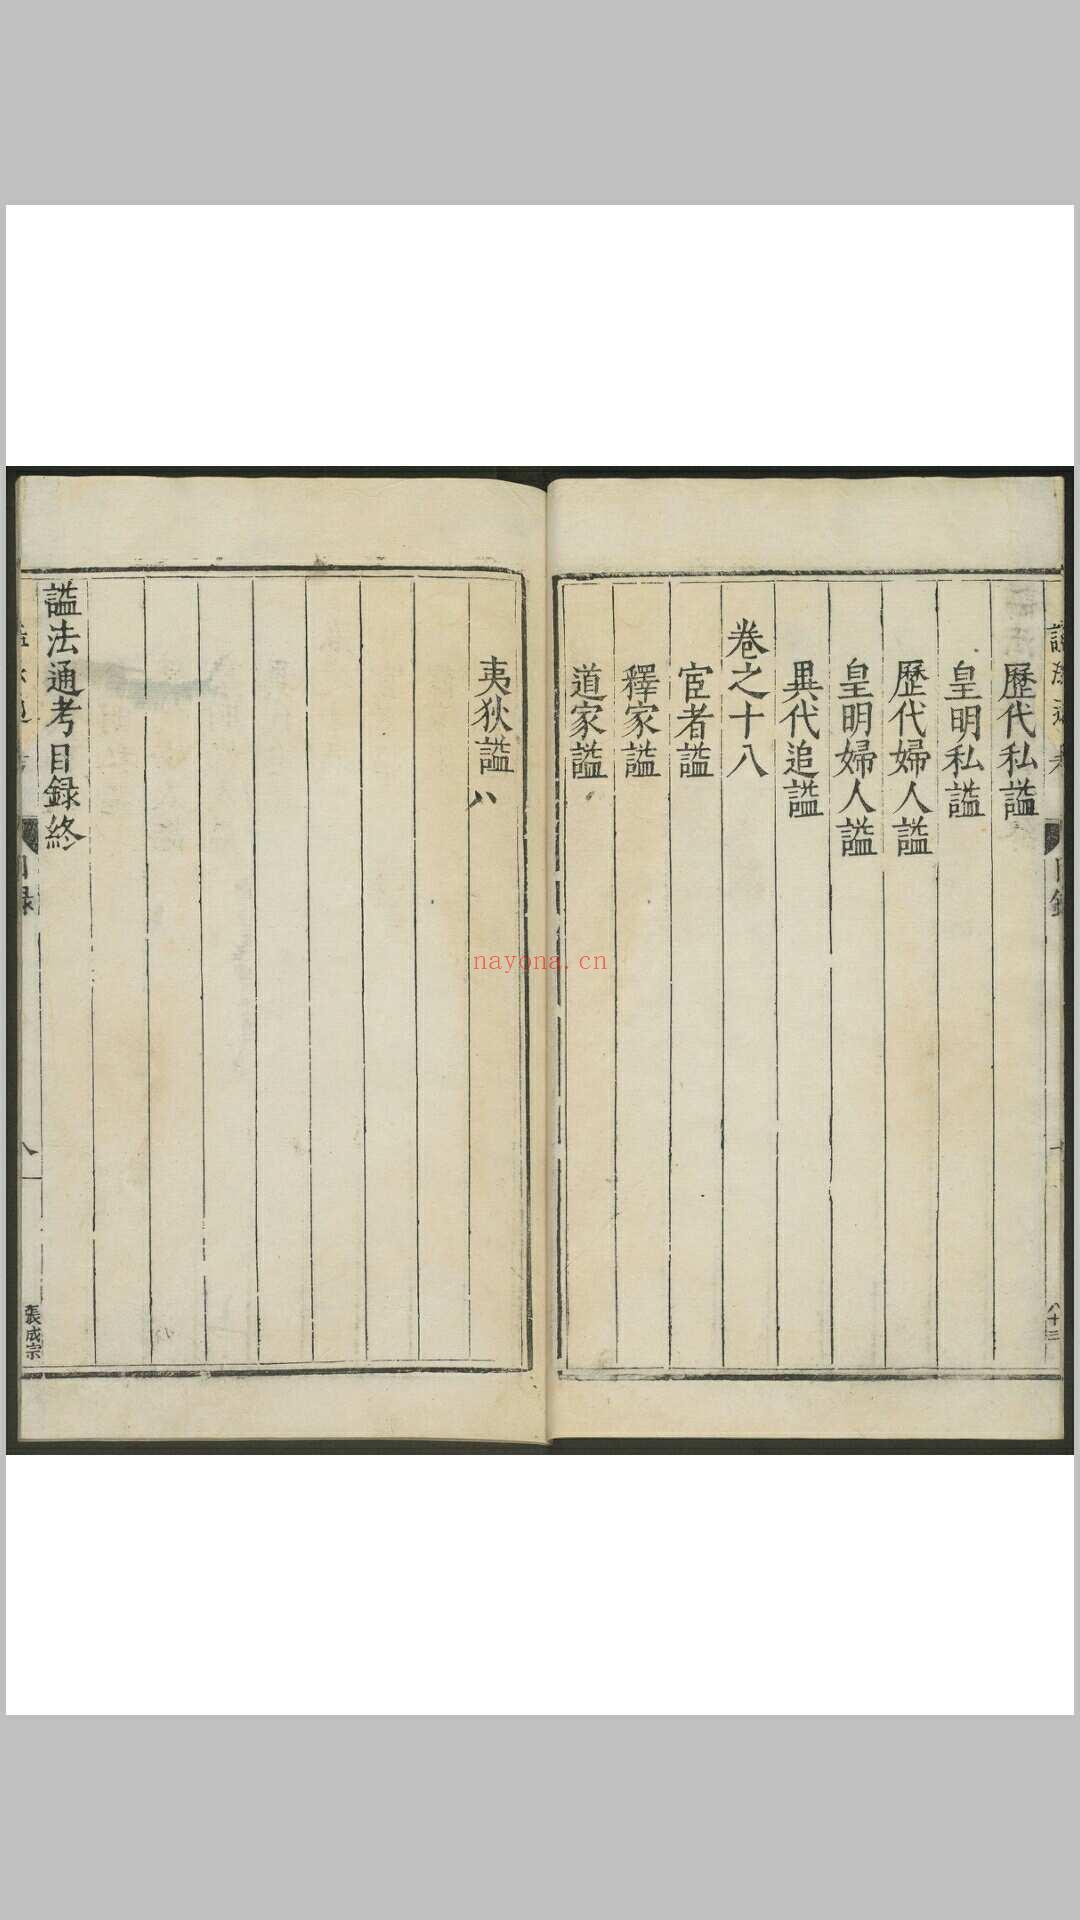 歷代私謚
皇明私謚
歷代婦人謚
皇明婦人謚
異代追謚
卷之十八
宦者謚
釋家謚
道家謚
夷狄謚
謚法通考目録終
張成宗
nayona.cn